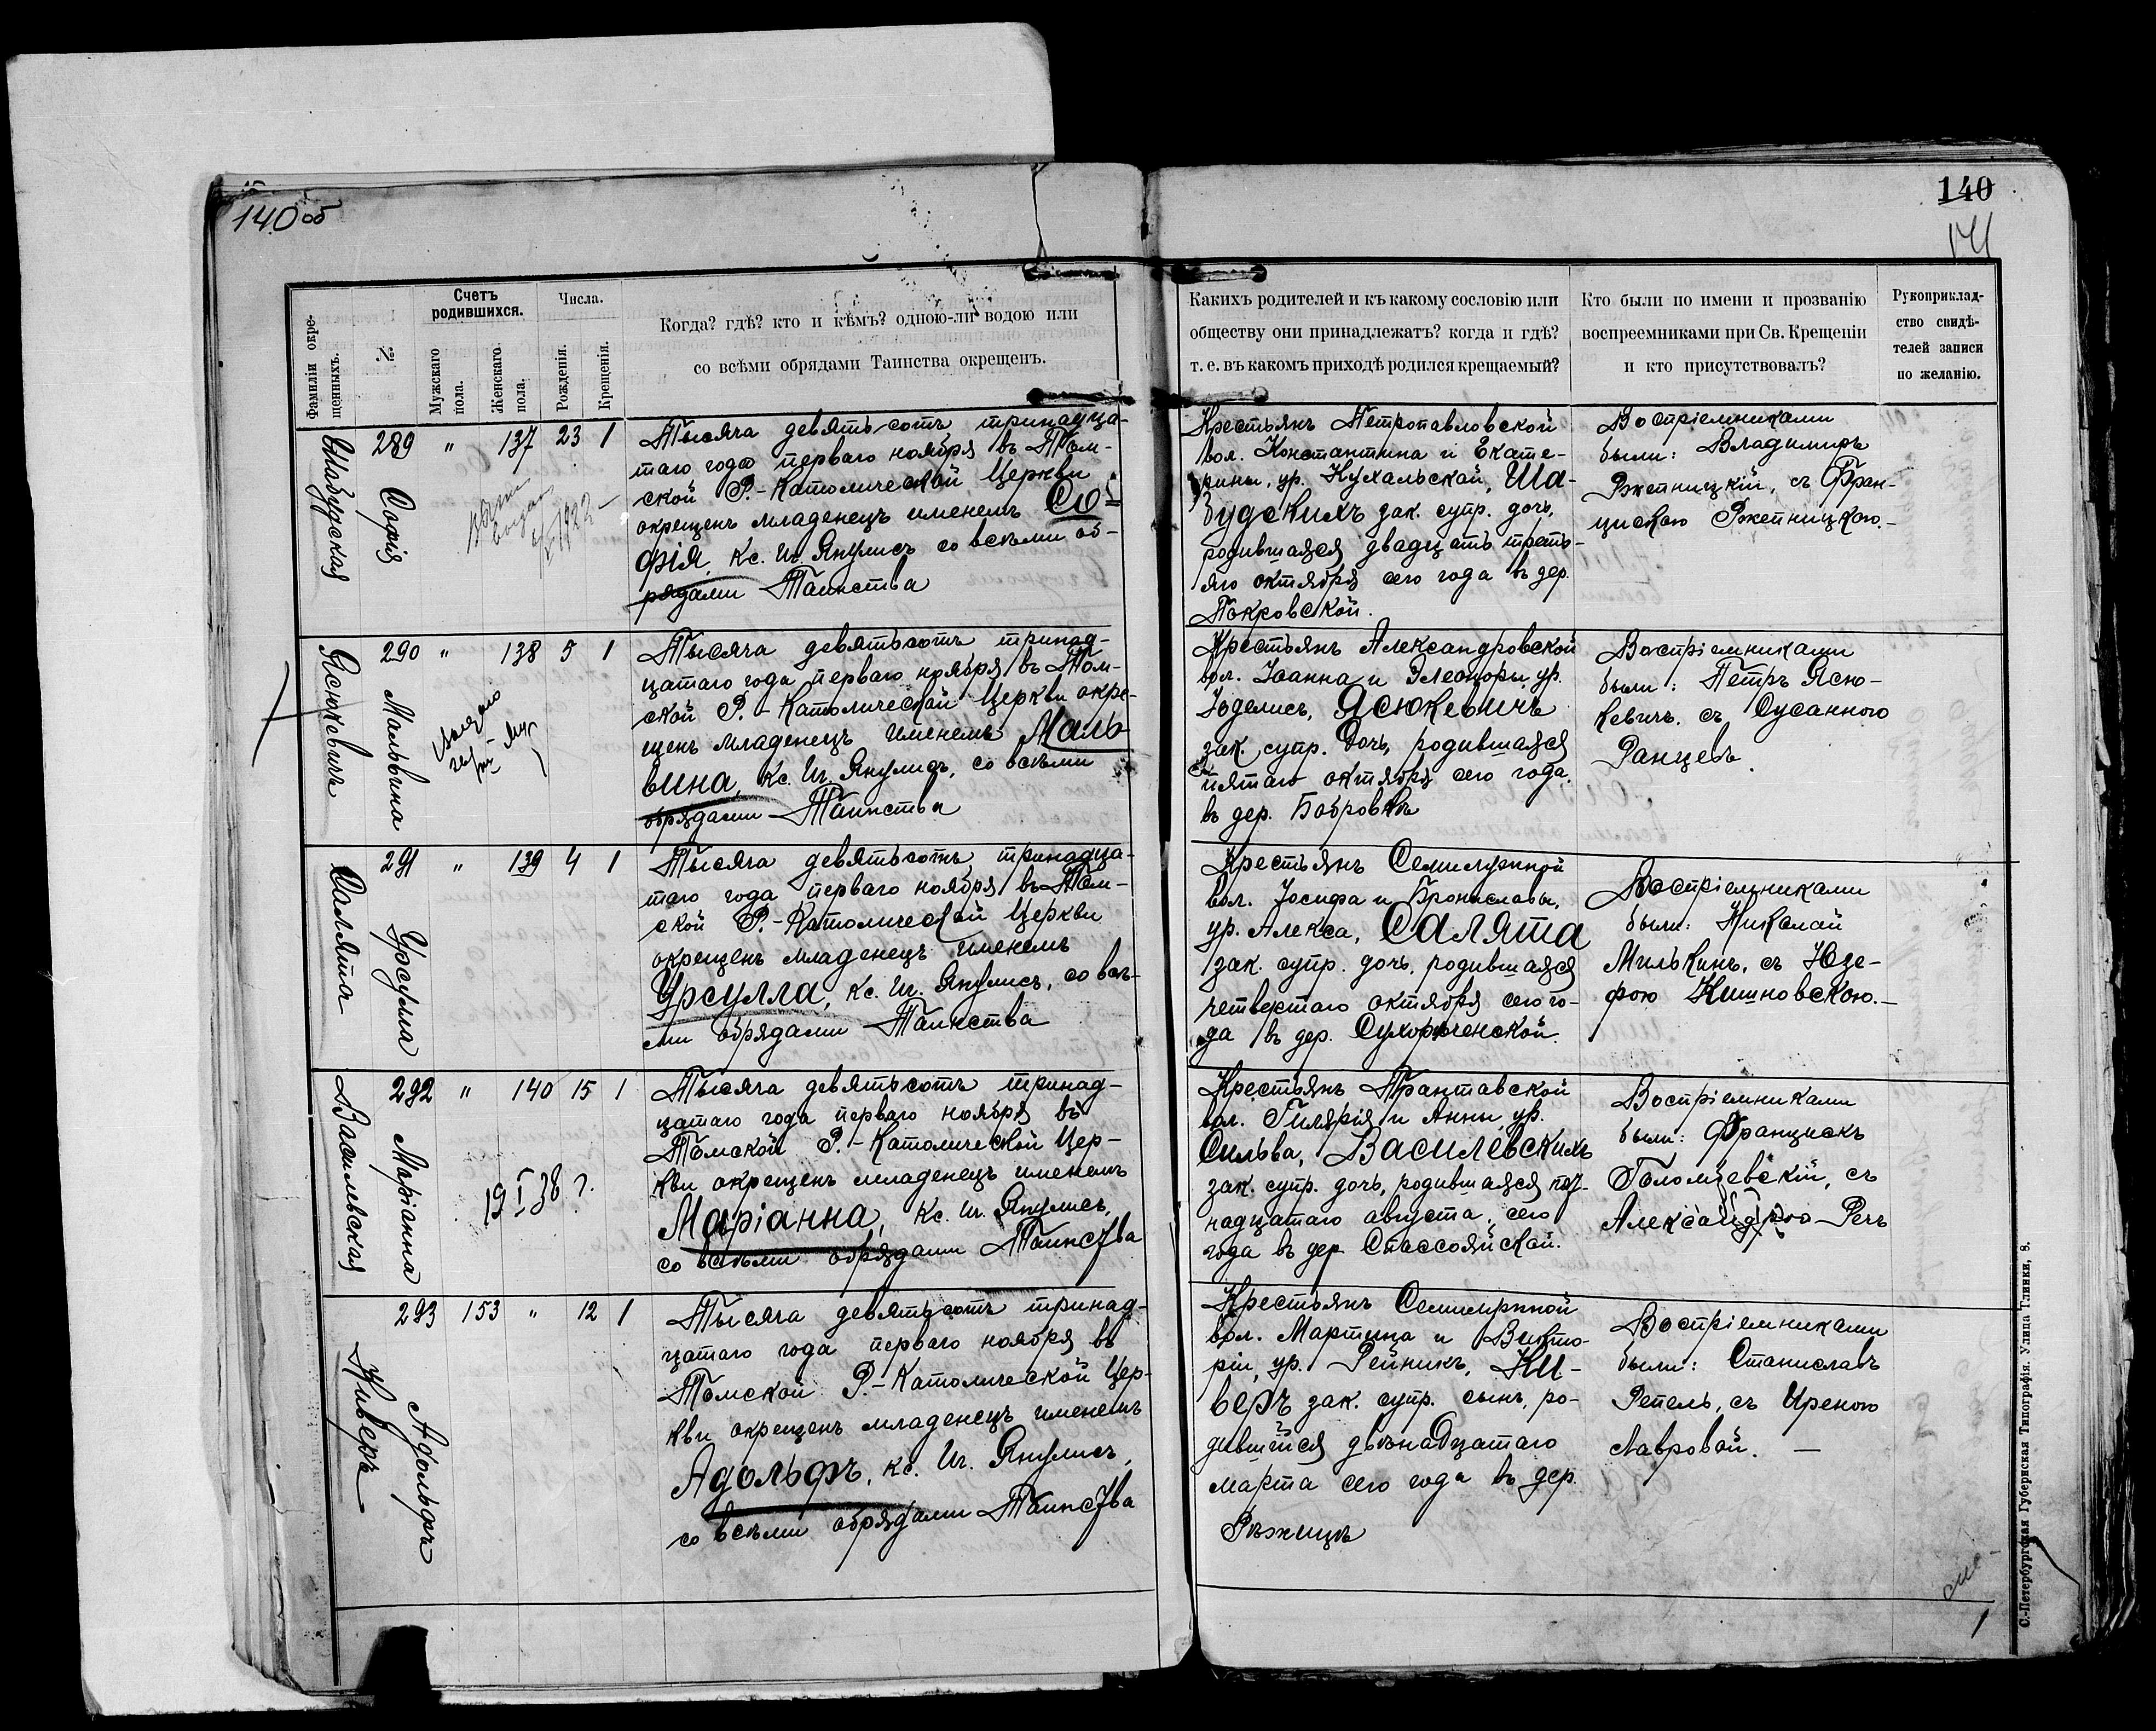 140 об
140
141
Фамиліи окре-
щенныхъ.
№
Счетъ
родившихся.
Мужскаго
пола.
Женскаго
пола.
Числа.
Рожденія.
Крещенія.
Когда? гдѣ? кто и кѣмъ? одною-ли водою или
со всѣми обрядами Таинства окрещенъ.
Какихъ родителей и къ какому сословію или
обществу они принадлежатъ? когда и гдѣ?
т. е. въ какомъ приходѣ родился крещаемый?
Кто были по имени и прозванію
воспреемниками при Св. Крещеніи
и кто присутствовалъ?
Рукоприклад-
ство свидѣ-
телей записи
по желанію.
Шабудская
289 " 137 23 1
Софія
1922
Тысяча девятьсотъ тринадца-
таго года перваго ноября въ Том-
ской Р.-Католической Церкви
окрещенъ младенецъ именемъ Со-
фія, кс. Иг. Янулисъ со всѣми об-
рядами Таинства
Крестьянъ Петропавловской
вол. Константина и Екате-
рины, ур. Кухальской, Ша-
будскихъ зак. супр. дочь,
родившаяся двадцать треть-
яго октября сего года въ дер.
Покровской.
Воспріемниками
были: Владимиръ
Ржетницкій, съ Фран-
цискою Ржетницкою.-
Ясюкевичъ
290 " 138 5 1
Мальвина
Тысяча девятьсотъ тринад-
цатаго года перваго ноября въ Том-
ской Р.-Католической Церкви окре-
щенъ младенецъ именемъ Маль-
вина, кс. Иг. Янулисъ, со всѣми
обрядами Таинства
Крестьянъ Александровской
вол. Іоанна и Элеоноры, ур.
Іоделисъ, Ясюкевичъ
зак. супр. дочь, родившаяся
пятаго октября сего года
въ дер. Бобровкѣ
Воспріемниками
были: Петръ Ясю-
кевичъ, съ Сусанною
Ранцевъ.
Салята
291 " 139 4 1
Урсулла
Тысяча девятьсотъ тринадца-
таго года перваго ноября въ Том-
ской Р.-Католической Церкви
окрещенъ младенецъ именемъ
Урсулла, кс. Иг. Янулисъ, со всѣ-
ми обрядами Таинства
Крестьянъ Семилужной
вол. Іосифа и Брониславы,
ур. Алекса, Салята
зак. супр. дочь, родившаяся
четвертаго октября сего го-
да въ дер. Сухорѣченской.
Воспріемниками
были: Николай
Милькинъ, съ Юзе-
фою Кишновскою.-
Василевская
292 " 140 15 1
Маріанна
19 I 38 г.
Тысяча девятьсотъ тринад-
цатаго года перваго ноября въ
Томской Р.-Католической Цер-
кви окрещенъ младенецъ именемъ
Маріанна, кс. Иг. Янулисъ,
со всѣми обрядами Таинства
Крестьянъ
вол. Гилярія и Анны, ур.
Сильва, Василевскихъ
зак. супр. дочь, родившаяся пят-
надцатаго августа сего
года въ дер. Спассояйской.
Воспріемниками
были: Францискъ
Голомзевскій, съ
Александрою Речь
Киверъ
293 153 " 12 1
Адольфъ
Тысяча девятьсотъ тринад-
цатаго года перваго ноября въ
Томской Р.-Католической Цер-
кви окрещенъ младенецъ именемъ
Адольфъ, кс. Иг. Янулисъ,
со всѣми обрядами Таинства
Крестьянъ Семилужной
вол. Мартина и Викто-
ріи, ур. Рейникъ, Ки-
веръ зак. супр. сынъ, ро-
дившійся двѣнадцатаго
марта сего года въ дер.
Рѣжицѣ
Воспріемниками
были: Станиславъ
Репель, съ Иреною
Лавровой. —
С.-Петербургская Губернская Типографія. Улица Глинки, 8.